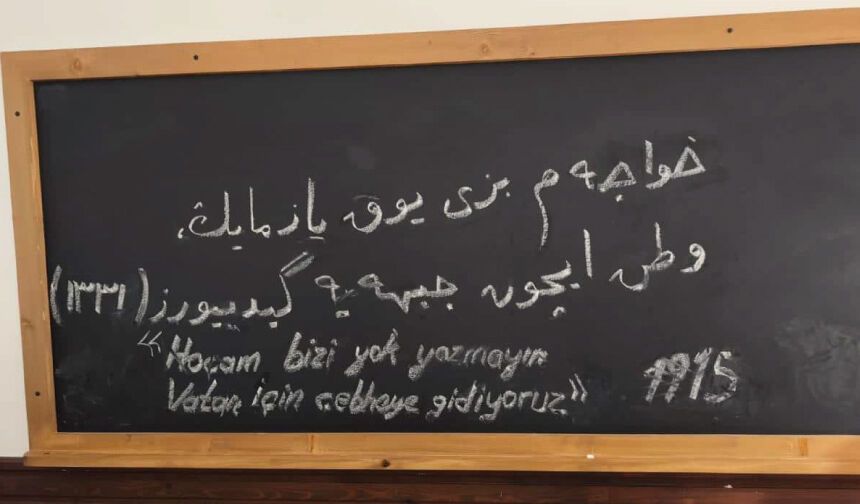 خواجه م بزی یوق یازمایڭ.
وطن ایچون جبهه یه گیدییورز (١٣٣١)
«Hocam bizi yok yazmayın
Vatan için cebheye gidiyoruz» 1915